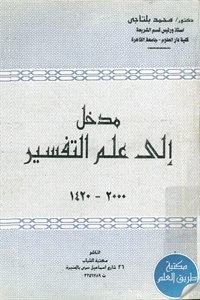 دكتور/ محمد بلتاجي
أستاذ ورئيس قسم الشريعة
كلية دار العلوم - جامعة القاهرة
مدخل
إلى علم التفسير
٢٠٠٠ - ١٤٢٠
الناشر
مكتبة الشباب
٢٦ شارع اسماعيل سرى بالمنيرة
مكتبة
طريق العلم